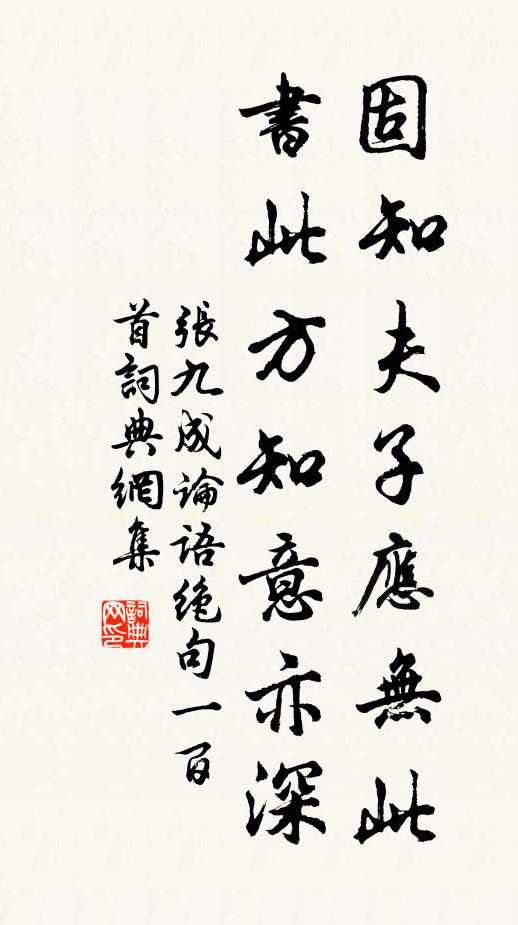 固知夫子應無此
書此方知意亦深
張九成論語絶句一百
首詞典網集
詞典
网印